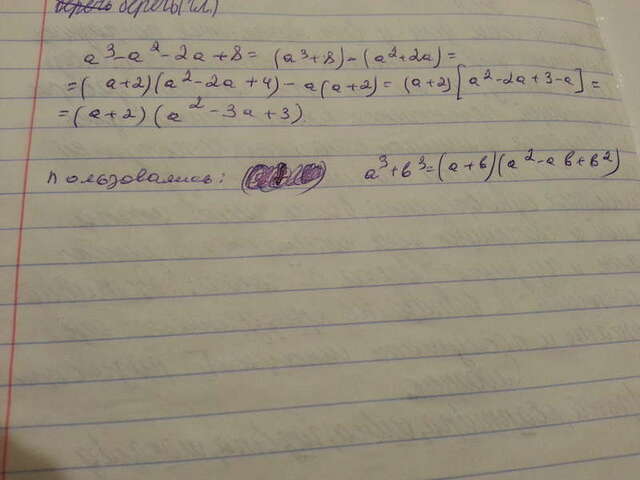 беречь(гл.)
a³-a²-2a+8= (a³+8)-(a²+2a)=
=( a+2)(a²-2a+4)-a(a+2)= (a+2)[a²-2a+3-a]=
=(a+2)(a²-3a+3)
Пользовались: a³+b³=(a+b)(a²-ab+b²)